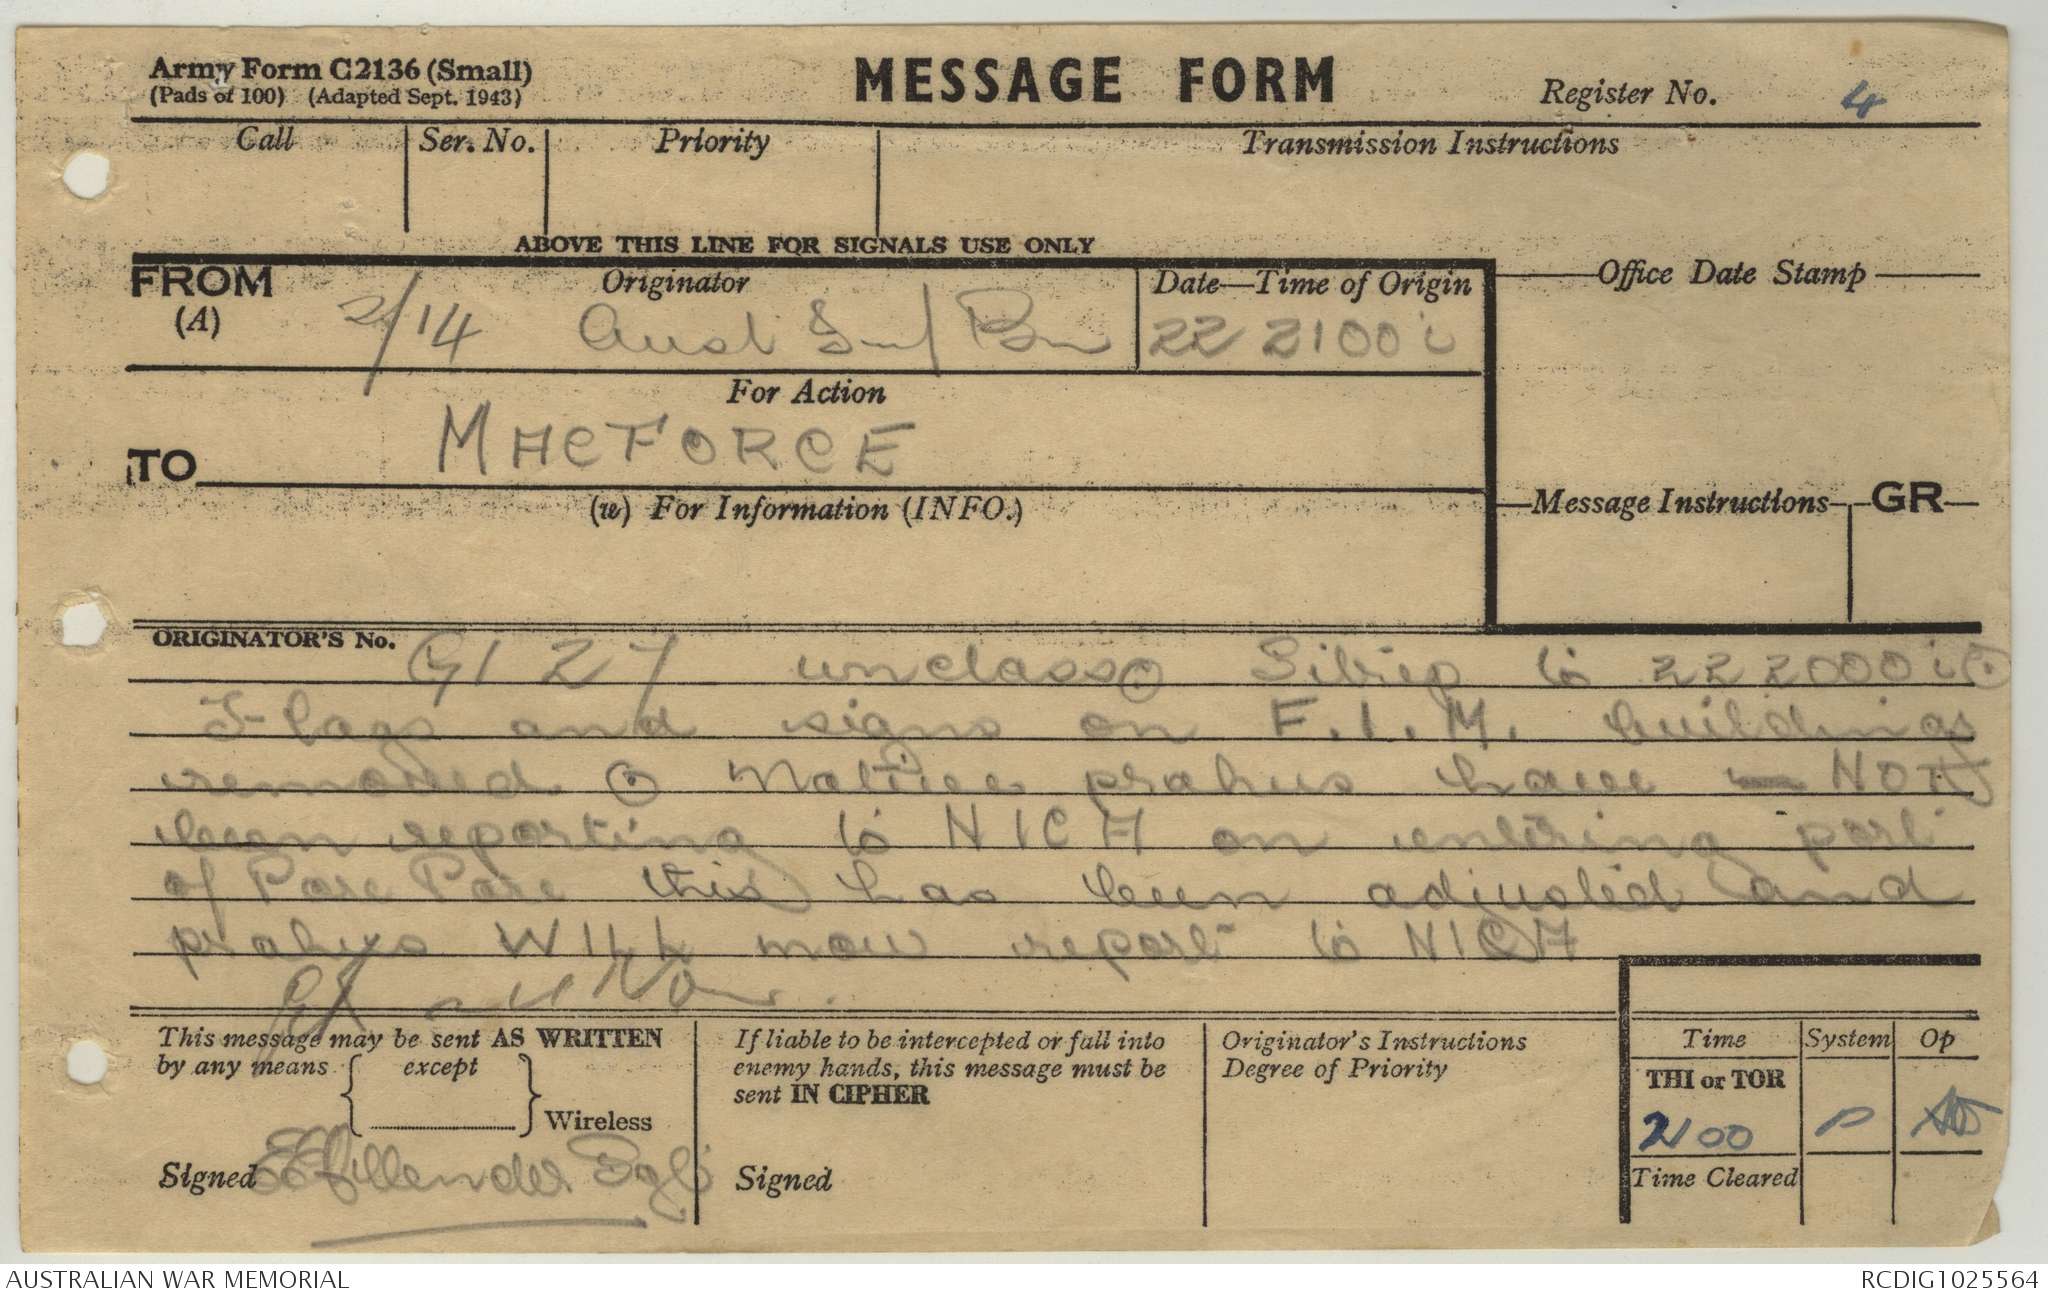 Army Form C2136 (Small)
(Pads of 100) (Adapted Sept. 1943)
MESSAGE FORM
Register No. 4
Call Ser. No. Priority Transmission Instructions
ABOVE THIS LINE FOR SIGNALS USE ONLY
FROM (A) Originator
2/14 Aust Inf Bn
Date—Time of Origin
22 2100 i
Office Date Stamp
For Action
TO MACFORCE
(w) For Information (INFO.)
Message Instructions GR
ORIGINATOR'S No. GI 27 unclass ⊙ Sitrep to 22 2000 i ⊙
Flags and signs on F.I.M. buildings
removed ⊙ Native prahus have NOT
been reporting to NICA on entering port
of Pare Pare this has been adjusted and
prahus WILL now report to NICA
This message may be sent AS WRITTEN
by any means except
Wireless
Signed
If liable to be intercepted or fall into
enemy hands, this message must be
sent IN CIPHER
Signed
Originator's Instructions
Degree of Priority
Time System Op
THI or TOR
2100 P
Time Cleared
AUSTRALIAN WAR MEMORIAL
RCDIG1025564